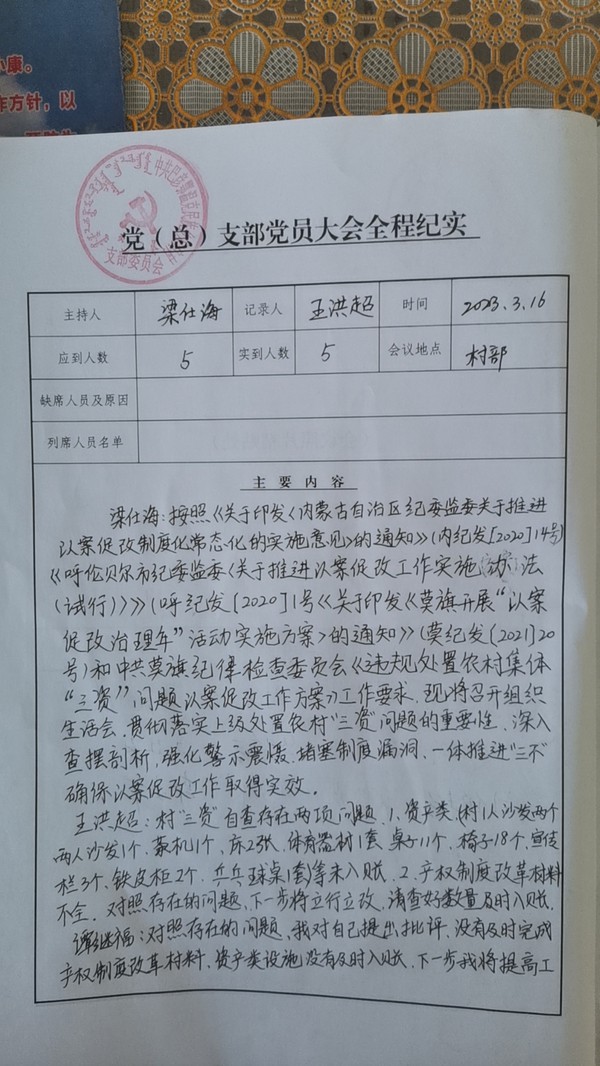 小康。
作方针，以
支部委员会
党（总）支部党员大会全程纪实
主持人 梁仕海 记录人 王洪超 时间 2023.3.16
应到人数 5 实到人数 5 会议地点 村部
缺席人员及原因
列席人员名单
主要内容
梁仕海：按照《关于印发〈内蒙古自治区纪委监委关于推进
以案促改制度化常态化的实施意见〉的通知》（内纪发[2020]14号）
《呼伦贝尔市纪委监委〈关于推进以案促改工作实施办法
（试行）〉》（呼纪发[2020]1号《关于印发《莫旗开展“以案
促改治理年”活动实施方案〉的通知》（莫纪发（2021）20
号）和中共莫旗纪律检查委员会《违规处置农村集体
“三资”问题以案促改工作方案》工作要求，现将召开组织
生活会，贯彻落实上级处置农村“三资”问题的重要性，深入
查摆剖析，强化警示震慑，堵塞制度漏洞，一体推进“三不”
确保以案促改工作取得实效。
王洪超：村“三资”自查存在两项问题，1、资产类，(村1人沙发两个
两人沙发1个，茶机1个，床2张，体育器材1套 桌子11个，椅子18个，宣传
栏3个，铁皮柜2个，乒乓球桌1套)等未入账，2、产权制度改革材料
不全。对照存在的问题，下一步将立行立改，清查好数量及时入账。
谭继福：对照存在的问题，我对自己提出批评，没有及时完成
产权制度改革材料，资产类设施没有及时入账，下一步我将提高工